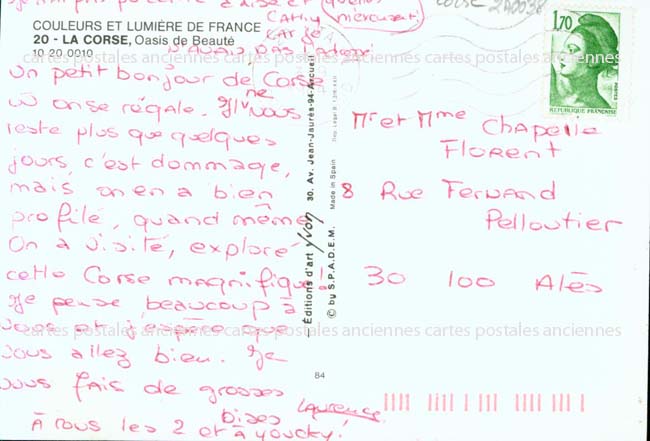 Corse 2A0038
Cathy (mercurent)
COULEURS ET LUMIÈRE DE FRANCE
20 - LA CORSE, Oasis de Beauté
10 20.0010
n'avais pas l'adresse
Un petit bonjour de Corse
où on se régale. Il ne nous
reste plus que quelques
jours, c'est dommage,
mais on en a bien
profité, quand même
On a visité, exploré
cette Corse magnifique!
Je pense beaucoup à
vous et j'espère que
vous allez bien. Je
vous fais de grosses
bises Laurence
À tous les 2 et à Youcky!
1,70
REPUBLIQUE FRANÇAISE
Mr et Mme Chapelle
FLORENT
8 Rue FERNAND
Pelloutier
30 100 Alès
— Éditions d'art yvon 30, Av. Jean-Jaurès-94-Arcueil
© by S.P.A.D.E.M. Made in Spain
84
cartes postales anciennes cartes postales anciennes cartes postales anciennes